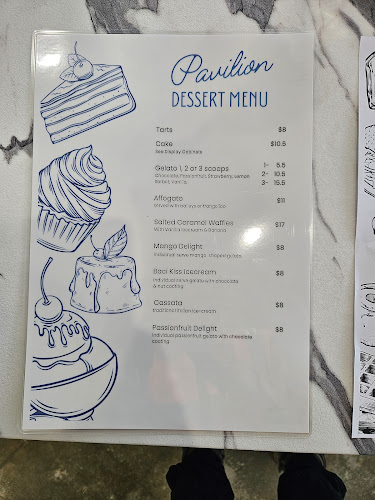 Pavilion
DESSERT MENU
Tarts $8
Cake $10.5
See Display Cabinets
Gelato 1, 2 or 3 scoops 1- 5.5
Chocolate, Passionfruit, Strawberry, Lemon 2- 10.5
Sorbet, Vanilla 3- 15.5
Affogato $11
Served with baileys or frangelico
Salted Caramel Waffles $17
With vanilla icecream & Banana
Mango Delight $8
Individual serve mango gelato
Baci Kiss Icecream $8
Individual choc gelato with chocolate
& nut coating
Cassata $8
traditional Italian ice-cream
Passionfruit Delight $8
Individual passionfruit gelato with chocolate
coating